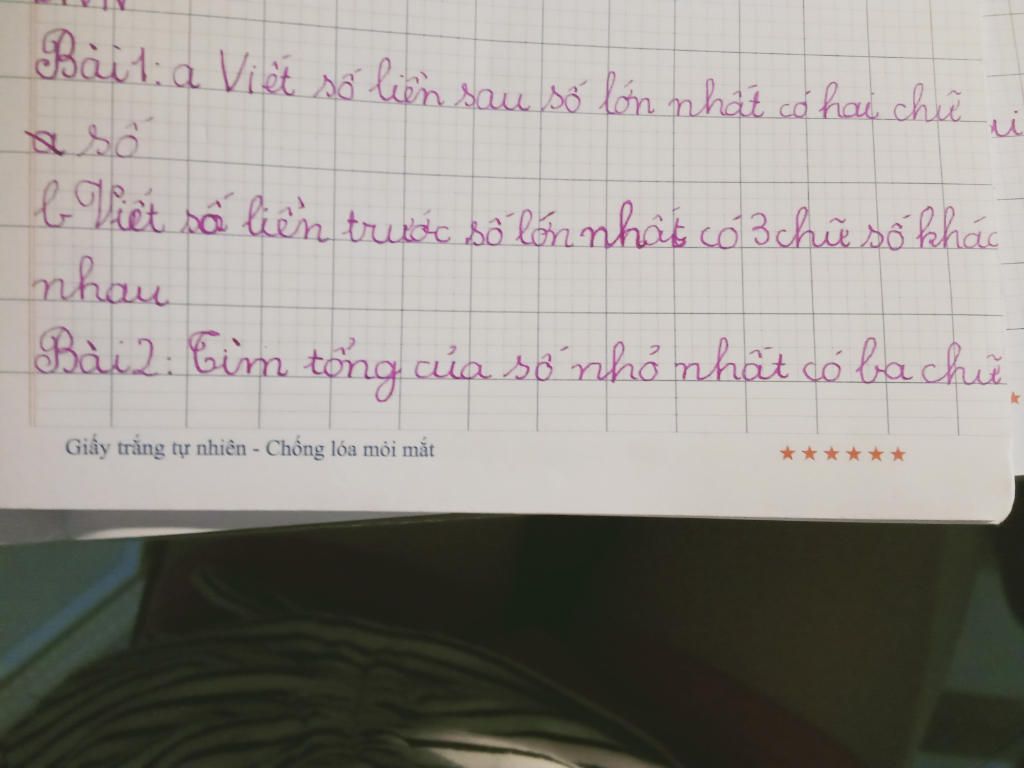 Bài 1: a Viết số liền sau số lớn nhất có hai chữ
a số
b Viết số liền trước số lớn nhất có 3 chữ số khác
nhau
Bài 2: Tìm tổng của số nhỏ nhất có ba chữ
Giấy trắng tự nhiên - Chống lóa mỏi mắt